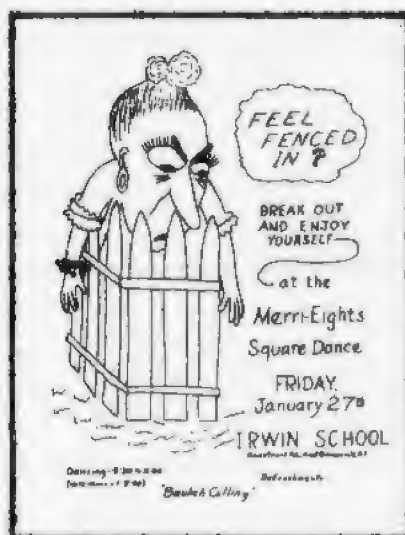 FEEL
FENCED
IN ?
BREAK OUT
AND ENJOY
YOURSELF
at the
Merri-Eights
Square Dance
FRIDAY,
January 27th
IRWIN SCHOOL
Dancing
Refreshments
"Beulah Calling"